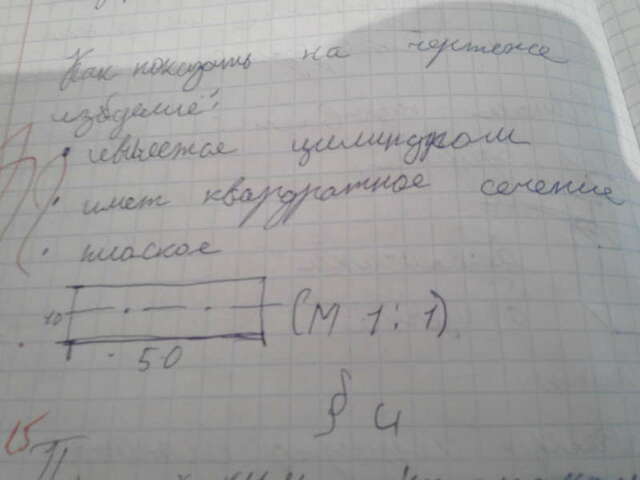 Как показать на чертеже
изделие:
цилиндром
имет квардратное сечение
плоское
10
(М 1:1)
50
§ 4
15